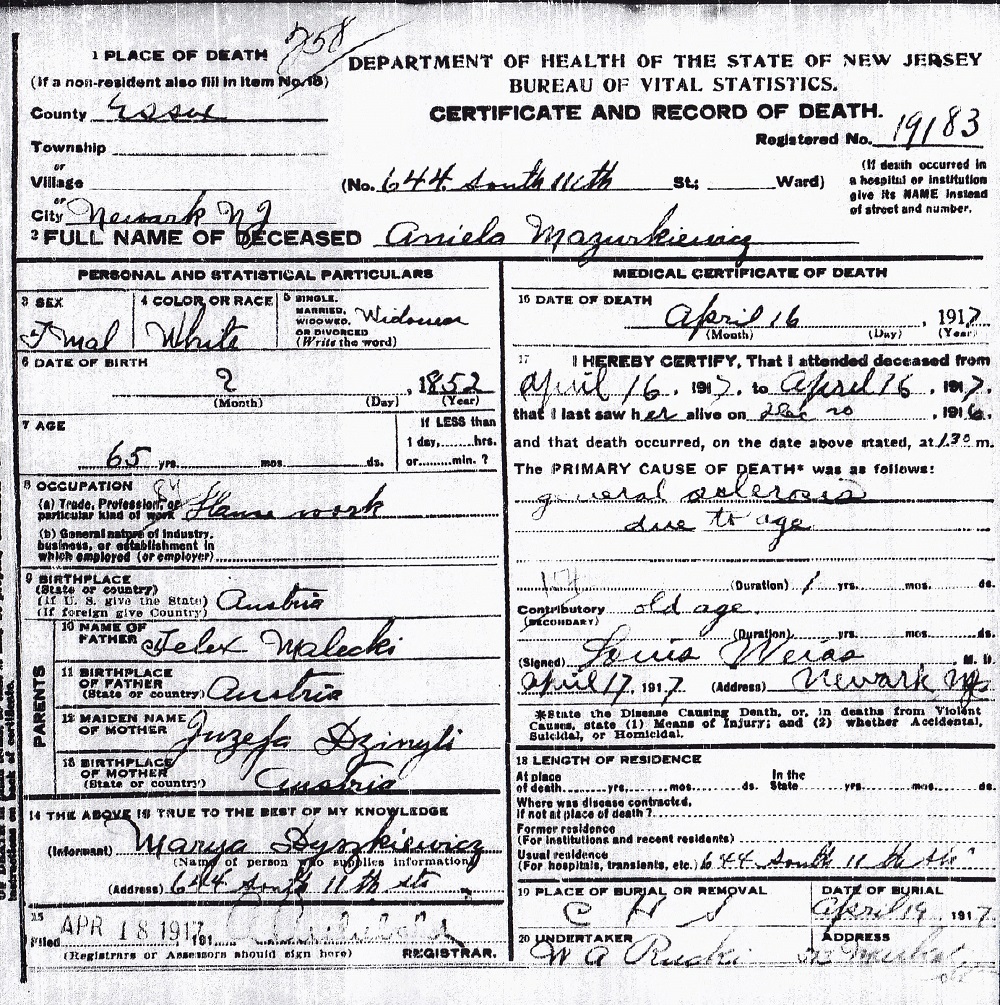 758
1 PLACE OF DEATH
(If a non-resident also fill in Item No. 18)
DEPARTMENT OF HEALTH OF THE STATE OF NEW JERSEY
BUREAU OF VITAL STATISTICS.
CERTIFICATE AND RECORD OF DEATH.
County Essex
Registered No. 19183
Township
or
Village
(No. 644 South 11th St; Ward)
(If death occurred in
a hospital or institution
give its NAME instead
of street and number.
or
City Newark NJ
2 FULL NAME OF DECEASED Aniela Mazurkiewicz
PERSONAL AND STATISTICAL PARTICULARS
3 SEX
Femal
4 COLOR OR RACE
White
5 SINGLE,
MARRIED,
WIDOWED,
OR DIVORCED
(Write the word)
Widower
6 DATE OF BIRTH
? , 1852
(Month) (Day) (Year)
7 AGE
65 yrs. mos. ds.
If LESS than
1 day, hrs.
or min. ?
8 OCCUPATION
(a) Trade, Profession, or
particular kind of work House work
(b) General nature of industry,
business, or establishment in
which employed (or employer)
9 BIRTHPLACE
(State or country)
(If U. S. give the State)
(If foreign give Country)
Austria
PARENTS
10 NAME OF
FATHER Felex Malecki
11 BIRTHPLACE
OF FATHER
(State or country) Austria
12 MAIDEN NAME
OF MOTHER Juzefa
13 BIRTHPLACE
OF MOTHER
(State or country) Austria
14 THE ABOVE IS TRUE TO THE BEST OF MY KNOWLEDGE
(Informant) Marya Dyszkiewicz
(Name of person who supplies information)
(Address) 644 South 11th str
15
Filed APR 18 1917 191
REGISTRAR.
(Registrars or Assessors should sign here)
MEDICAL CERTIFICATE OF DEATH
16 DATE OF DEATH
April 16 , 1917
(Month) (Day) (Year)
17 I HEREBY CERTIFY, That I attended deceased from
April 16 , 1917. to April 16 , 1917.
that I last saw her alive on Dec 20 , 1916.
and that death occurred, on the date above stated, at 1.30 m.
The PRIMARY CAUSE OF DEATH* was as follows:
general sclerosis
due to age
154
(Duration) 1 yrs. mos. ds.
Contributory old age
(SECONDARY)
(Duration) yrs. mos. ds.
(Signed) Louis Weiss M. D.
April 17, 1917. (Address) Newark NJ
*State the Disease Causing Death, or, in deaths from Violent
Causes, state (1) Means of Injury; and (2) whether Accidental,
Suicidal, or Homicidal.
18 LENGTH OF RESIDENCE
At place
of death yrs. mos. ds.
In the
State yrs. mos. ds.
Where was disease contracted,
If not at place of death ?
Former residence
(For institutions and recent residents)
Usual residence
(For hospitals, transients, etc.) 644 South 11th str
19 PLACE OF BURIAL OR REMOVAL
C H S
DATE OF BURIAL
April 19 , 1917.
20 UNDERTAKER
W A Rucki
ADDRESS